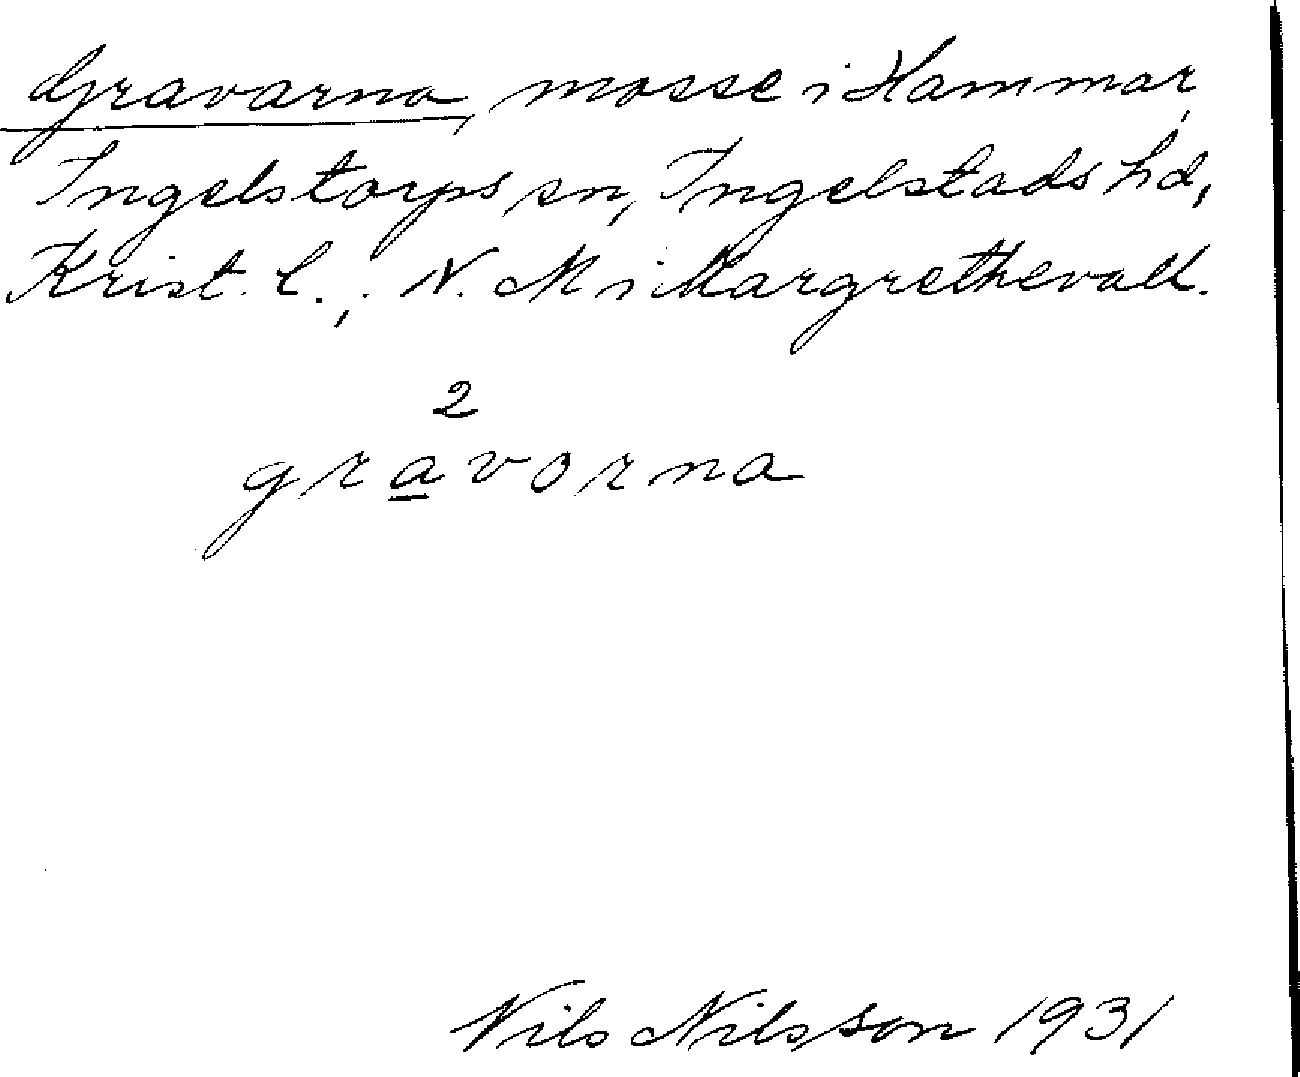 Gravarna, mosse i Hammar,
Ingelstorps sn, Ingelstads hd,
Krist. l.; N. M i Margrethevall.
2
gravorna
Nils Nilsson 1931